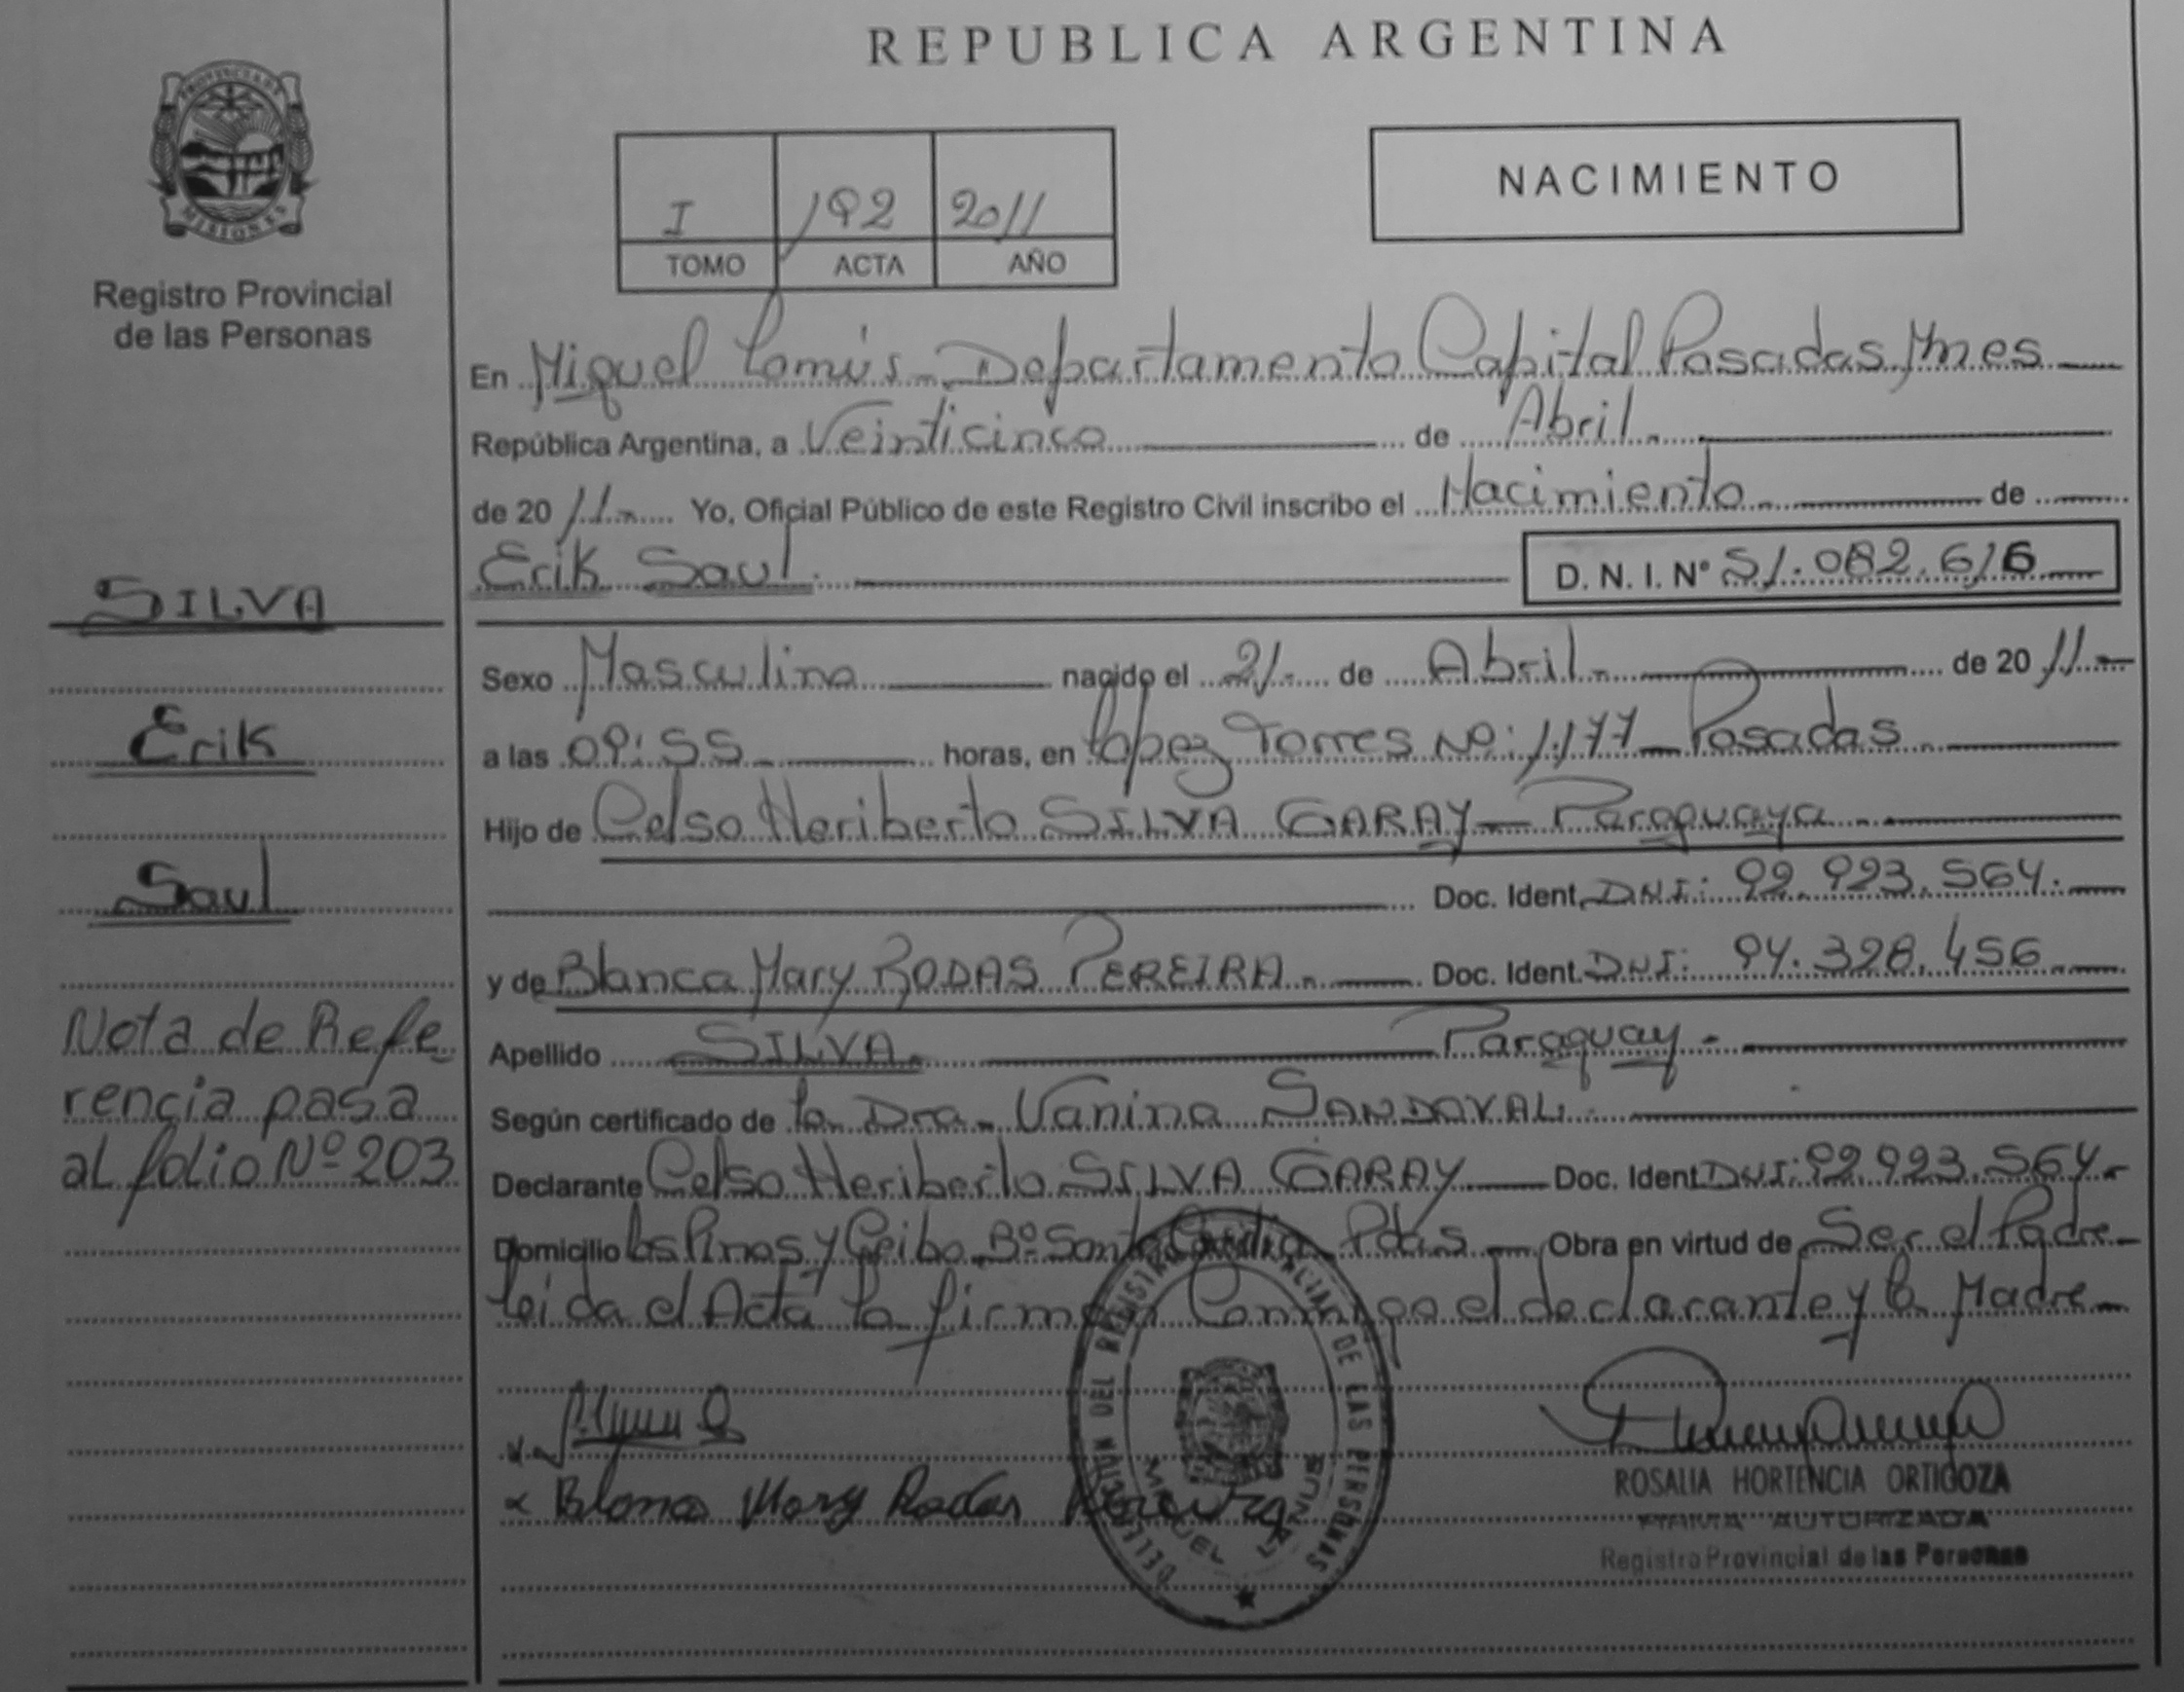 REPUBLICA ARGENTINA
PROVINCIA DE
MISIONES
Registro Provincial
de las Personas
I 192 2011
TOMO ACTA AÑO
NACIMIENTO
En Miguel Lanús - Departamento Capital Posadas, Mnes
República Argentina, a Veinticinco de Abril.
de 2011.- Yo, Oficial Público de este Registro Civil inscribo el Nacimiento de
Erik Saul. D. N. I. N° 51.082.616
SILVA
Erik
Saul
Nota de Refe
rencia pasa
al folio Nº 203
Sexo Masculino nacido el 21.- de Abril.- de 2011.-
a las 09:55 horas, en López Torres Nº: 1.177 - Posadas.
Hijo de Celso Heriberto SILVA GARAY - Paraguaya.
Doc. Ident. DNI: 92.923.564.
y de Blanca Mary RODAS PEREIRA. Doc. Ident. DNI: 94.328.456
Apellido SILVA. Paraguay.-
Según certificado de la Dra. Vanina SANDOVAL.
Declarante Celso Heriberto SILVA GARAY Doc. Ident. DNI: 92.923.564.-
Domicilio Los Pinos y Ceibo Bº Santa Cecilia Pdas - Obra en virtud de Ser el Padre
leida el Acta la firman Conmigo el declarante y la Madre
x Blanca Mary Rodas Pereira
DELEGACIÓN DEL REGISTRO PROVINCIAL DE LAS PERSONAS
MIGUEL LANUS
ROSALIA HORTENCIA ORTIGOZA
FIRMA AUTORIZADA
Registro Provincial de las Personas